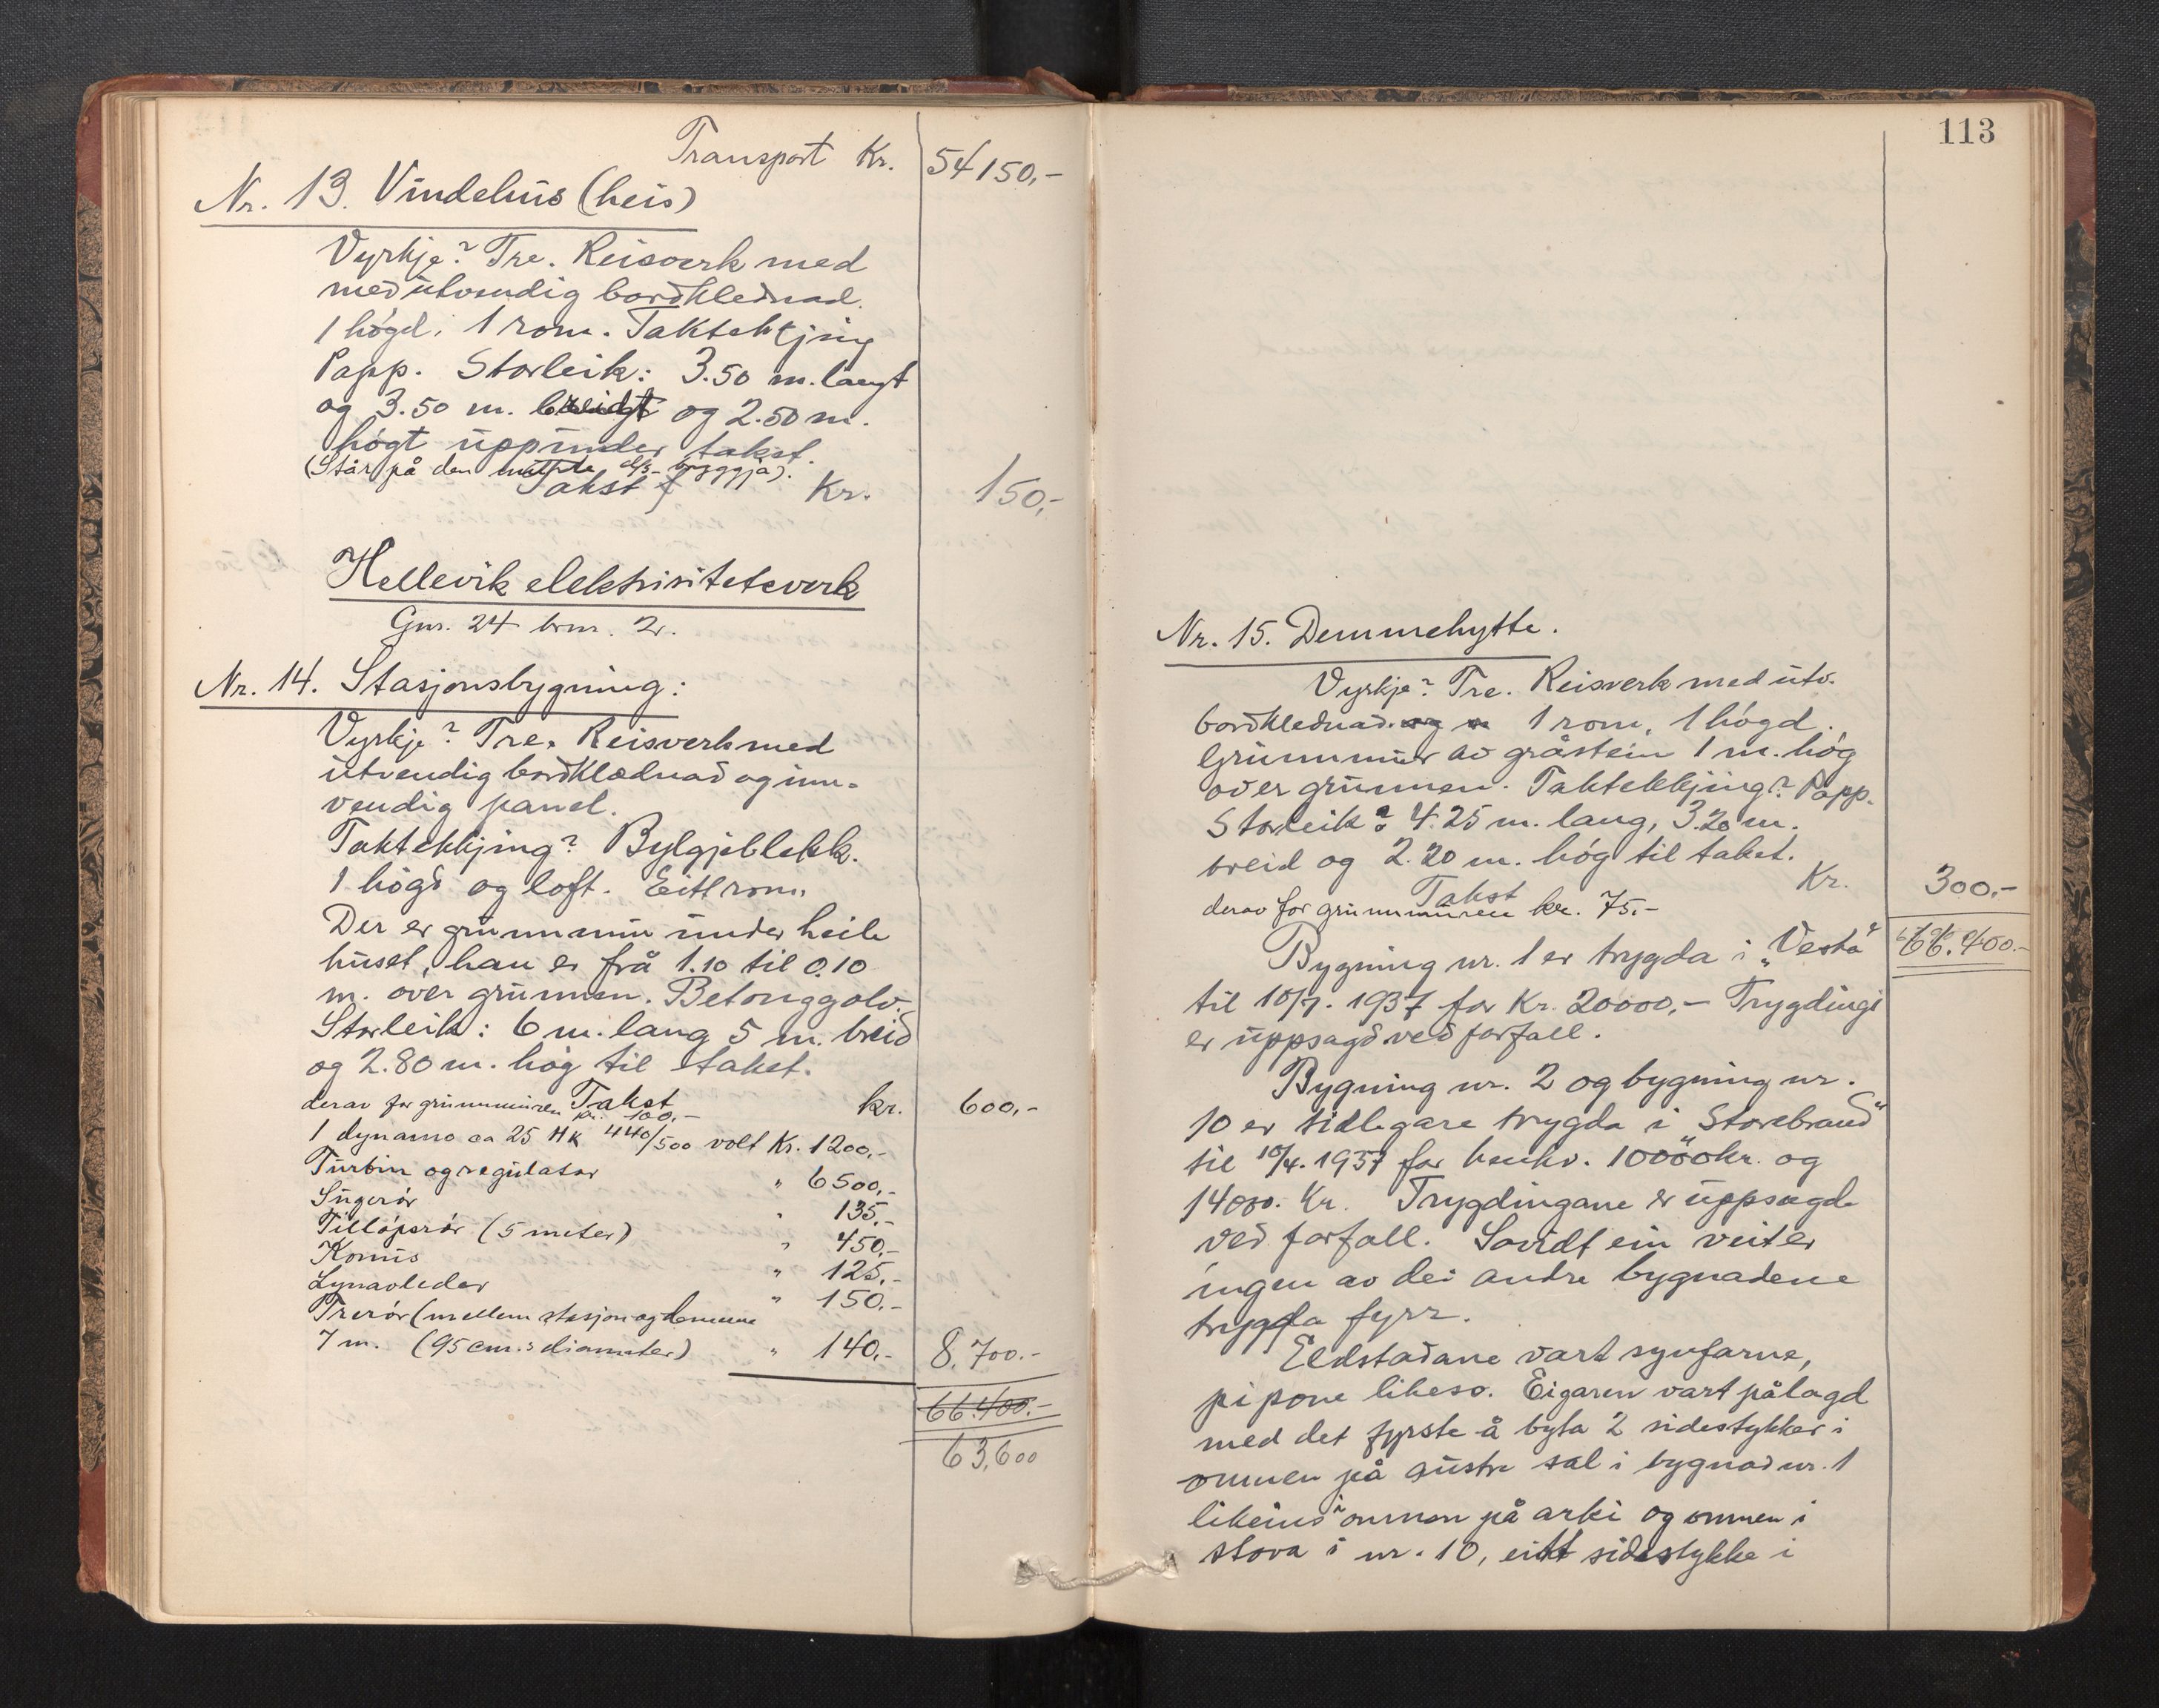 Transport Kr. 54150,-
Nr. 13. Vindehus (heis)
Vyrkje? Tre. Reisverk med
med utvendig bordklednad.
1 høgd, 1 rom. Taktekkjing
Papp. Storleik: 3.50 m. langt
og 3.50 m. breidt og 2.50 m.
høgt uppunder taket.
(Står på den bryggja).
Takst Kr. 150,-
Hellevik elektrisitetsverk
Gnr. 24 brnr. 2.
Nr. 14. Stasjonsbygning:
Vyrkje? Tre. Reisverk med
utvendig bordklædnad og inn-
vendig panel.
Taktekkjing? Bylgjeblekk.
1 høgd og loft. Eitt rom.
Der er grunnmur under heile
huset, han er frå 1.10 til 0.10
m. over grunnen. Betonggolv.
Storleik: 6 m. lang 5 m. breid
og 2.80 m. høg til taket.
Takst kr. 600,-
derav for grunnmuren kr. 100,-
1 dynamo ca 25 HK 440/500 volt Kr. 1200,-
Turbin og regulator " 6500,-
Sugerør " 135,-
Tilløpsrør (5 meter) " 450,-
Konus " 125,-
Lynavleder " 150,-
Trerør (mellem stasjon og demme
7 m. (95 cm.s diameter) " 140,- 8.700.-
66.400.-
63,600
113
Nr. 15. Demmehytte.
Vyrkje? Tre. Reisverk med utv.
bordklednad. og 1 rom, 1 høgd.
Grunnmur av gråstein 1 m. høg
over grunnen. Taktekkjing? Papp.
Storleik? 4.25 m. lang, 3.20 m.
breid og 2.20 m. høg til taket.
Takst Kr. 300,-
derav for grunnmuren kr. 75,-
Bygning nr. 1 er trygda i "Vesta"
til 10/7. 1937 for Kr. 20000,- Trygdingi
er uppsagd ved forfall.
Bygning nr. 2 og bygning nr.
10 er sidlegare trygda i "Storebrand"
til 10/4. 1937 for henhv. 10000 kr. og
14000. Kr. Trygdingane er uppsagde
ved forfall. Sovidt ein veit er
ingen av dei andre bygnadene
trygda fyrr.
Eldstadane vart synfarne,
pipone likeso. Eigaren vart pålagd
med det fyrste å byta 2 sidestykker i
omnen på austre sal i bygnad nr. 1
likeins i omnen på arki og omnen i
stova i nr. 10, eitt sidestykke i